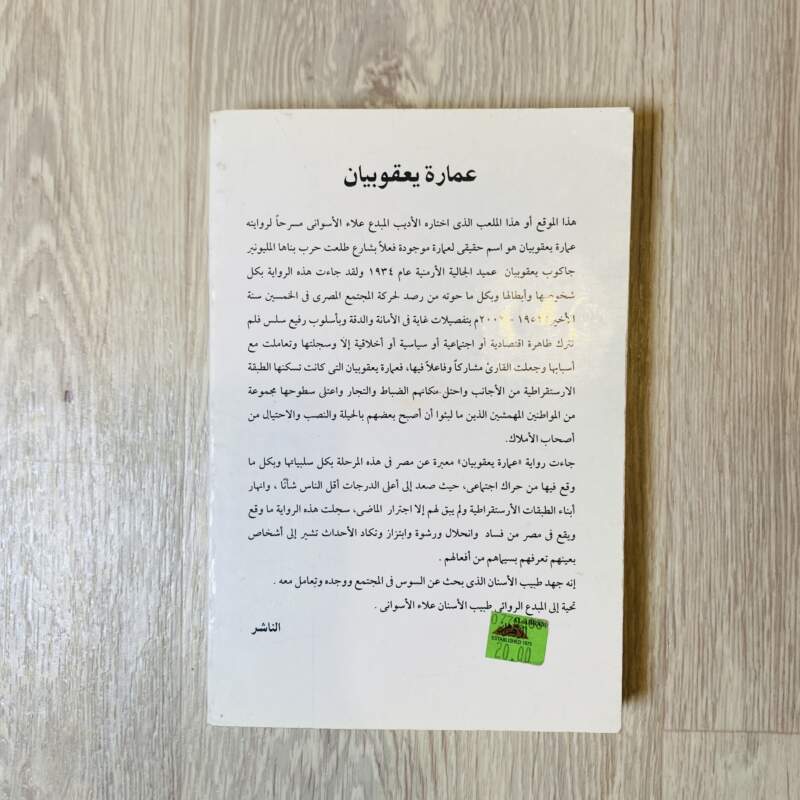 عمارة يعقوبيان
هذا الموقع أو هذا الملعب الذى اختاره الأديب المبدع علاء الأسوانى مسرحاً لروايته
عمارة يعقوبيان هو اسم حقيقى لعمارة موجودة فعلاً بشارع طلعت حرب بناها المليونير
جاكوب يعقوبيان عميد الجالية الأرمنية عام ١٩٣٤ ولقد جاءت هذه الرواية بكل
شخوصها وأبطالها وبكل ما حوته من رصد لحركة المجتمع المصرى فى الخمسين سنة
بتفصيلات غاية فى الأمانة والدقة وبأسلوب رفيع سلس فلم
تترك ظاهرة اقتصادية أو اجتماعية أو سياسية أو أخلاقية إلا وسجلتها وتعاملت مع
أسبابها وجعلت القارئ مشاركاً وفاعلاً فيها، فعمارة يعقوبيان التى كانت تسكنها الطبقة
الارستقراطية من الأجانب واحتل مكانهم الضباط والتجار واعتلى سطوحها مجموعة
من المواطنين المهمشين الذين ما لبثوا أن أصبح بعضهم بالحيلة والنصب والاحتيال من
أصحاب الأملاك.
جاءت رواية «عمارة يعقوبيان» معبرة عن مصر فى هذه المرحلة بكل سلبياتها وبكل ما
وقع فيها من حراك اجتماعى، حيث صعد إلى أعلى الدرجات أقل الناس شأنًا ، وانهار
أبناء الطبقات الأرستقراطية ولم يبق لهم إلا اجترار الماضى، سجلت هذه الرواية ما وقع
ويقع فى مصر من فساد وانحلال ورشوة وابتزاز وتكاد الأحداث تشير إلى أشخاص
بعينهم تعرفهم بسيماهم من أفعالهم .
إنه جهد طبيب الأسنان الذى بحث عن السوس فى المجتمع ووجده وتعامل معه .
تحية إلى المبدع الروائى طبيب الأسنان علاء الأسوانى .
الناشر
ESTABLISHED 1875
20.00